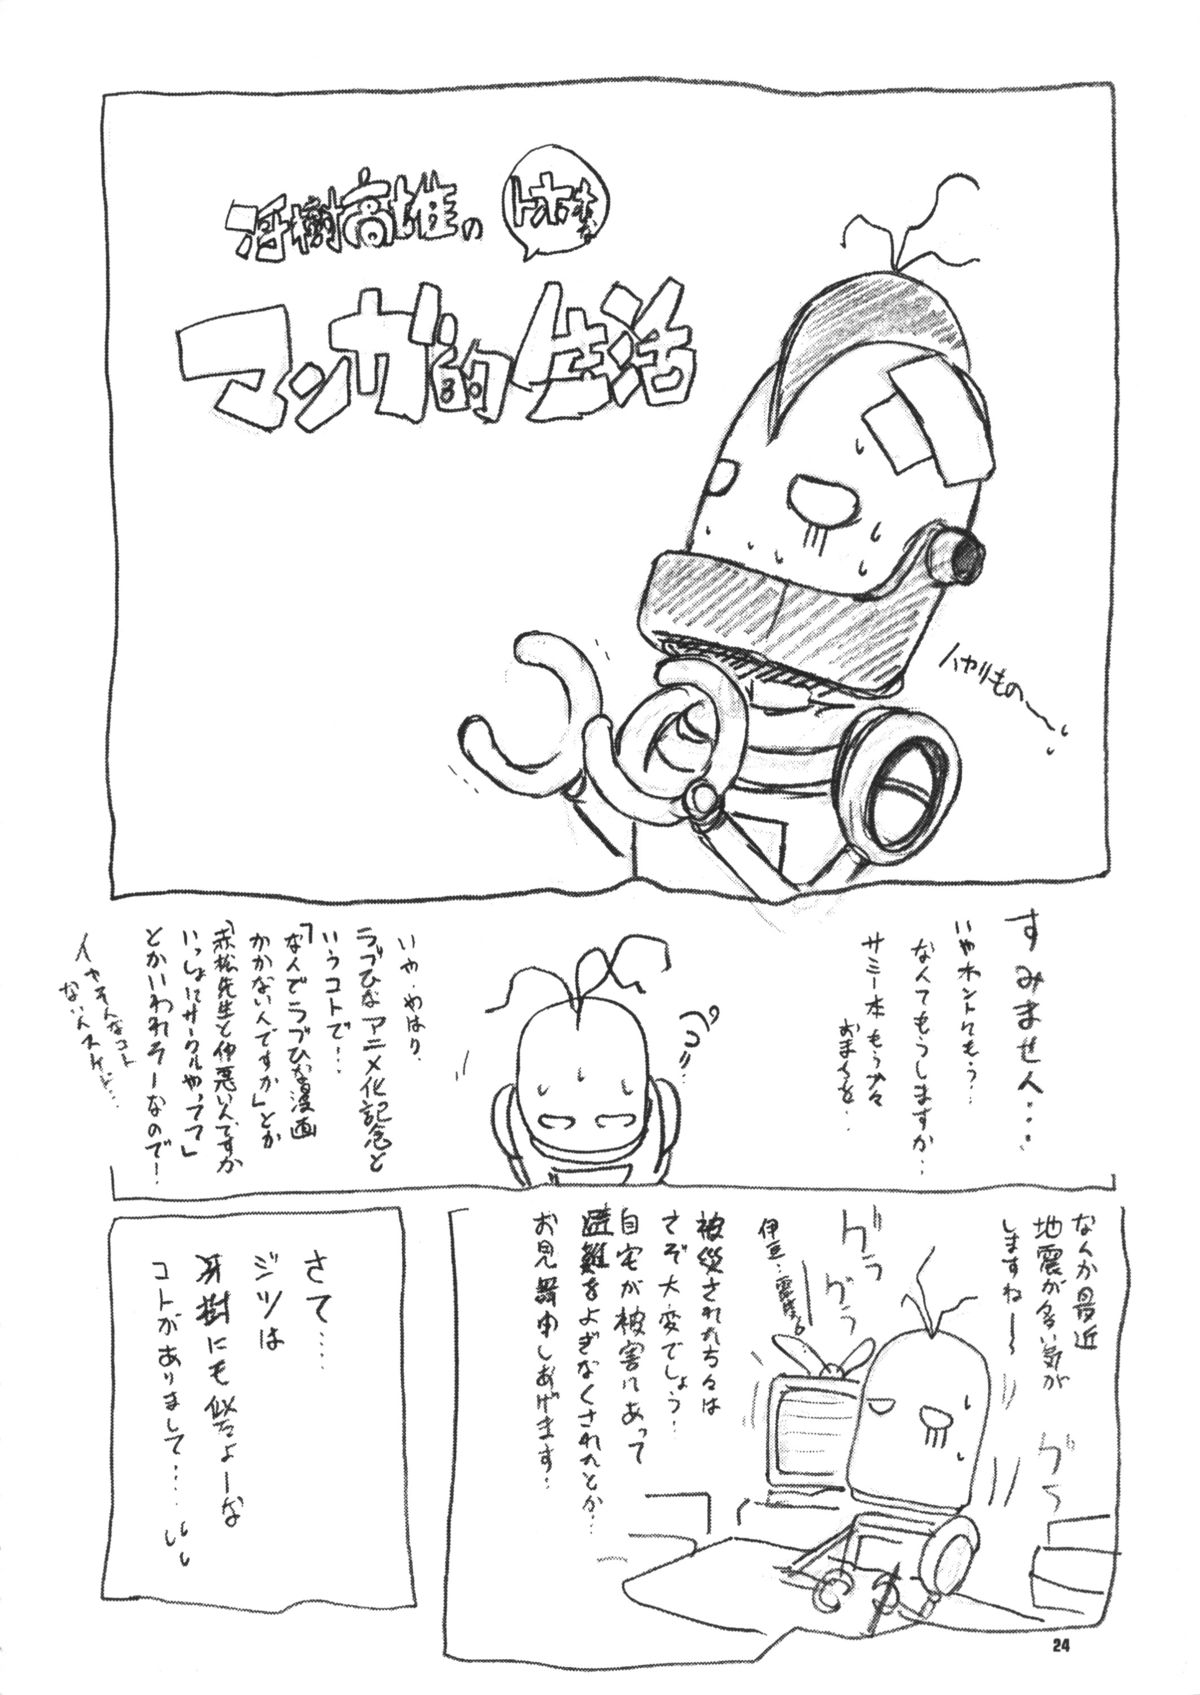 冴樹高雄の
トホホな
マンガ的生活
ハヤリもの〜
すみません・・・
いやホントにもう…
なんてもうしますか…
サミー本もう少々
おまちを…
ペコリ…
いや、やはり
ラブひなアニメ化記念と
いうコトで!…
「なんでラブひな漫画
かかないんですか」とか
「赤松先生と仲悪いんですか
いっしょにサークルやってて」
とかいわれそーなので!
イヤそんなコト
ないんスけど…
なんか最近
地震が多い気が
しますね〜
グラ
グラ
グラ
伊豆…震度6
被災された方々は
さぞ大変でしょう!
自宅が被害にあって
避難をよぎなくされたとか…
お見舞申しあげます…
さて……
ジツは
冴樹にも似たよーな
コトがありまして……
24